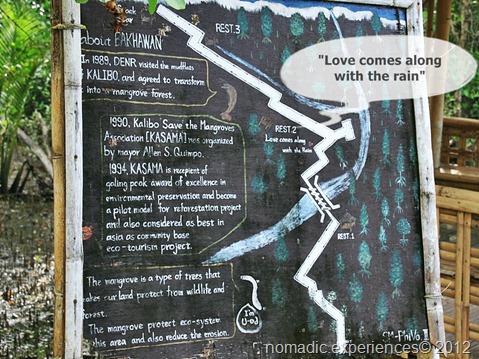 REST. 3
about BAKHAWAN
In 1989, DENR visited the mudflats
KALIBO, and agreed to transform
into mangrove forest.
"Love comes along
with the rain"
1990, Kalibo Save the Mangroves
Association [KASAMA] was organized
by mayor Allen S. Quimpo.
1994, KASAMA is recipient of
galing pook award of excellence in
environmental preservation and become
a pilot model for reforestation project
and also considered as best in
asia as community base
eco-tourism project.
REST. 2
Love comes along
with the Rain
REST. 1
The mangrove is a type of trees that
makes our land protect from wildlife and
forest.
The mangrove protect eco-system
this area and also reduce the erosion.
I'm
nomadic.experiences© 2012